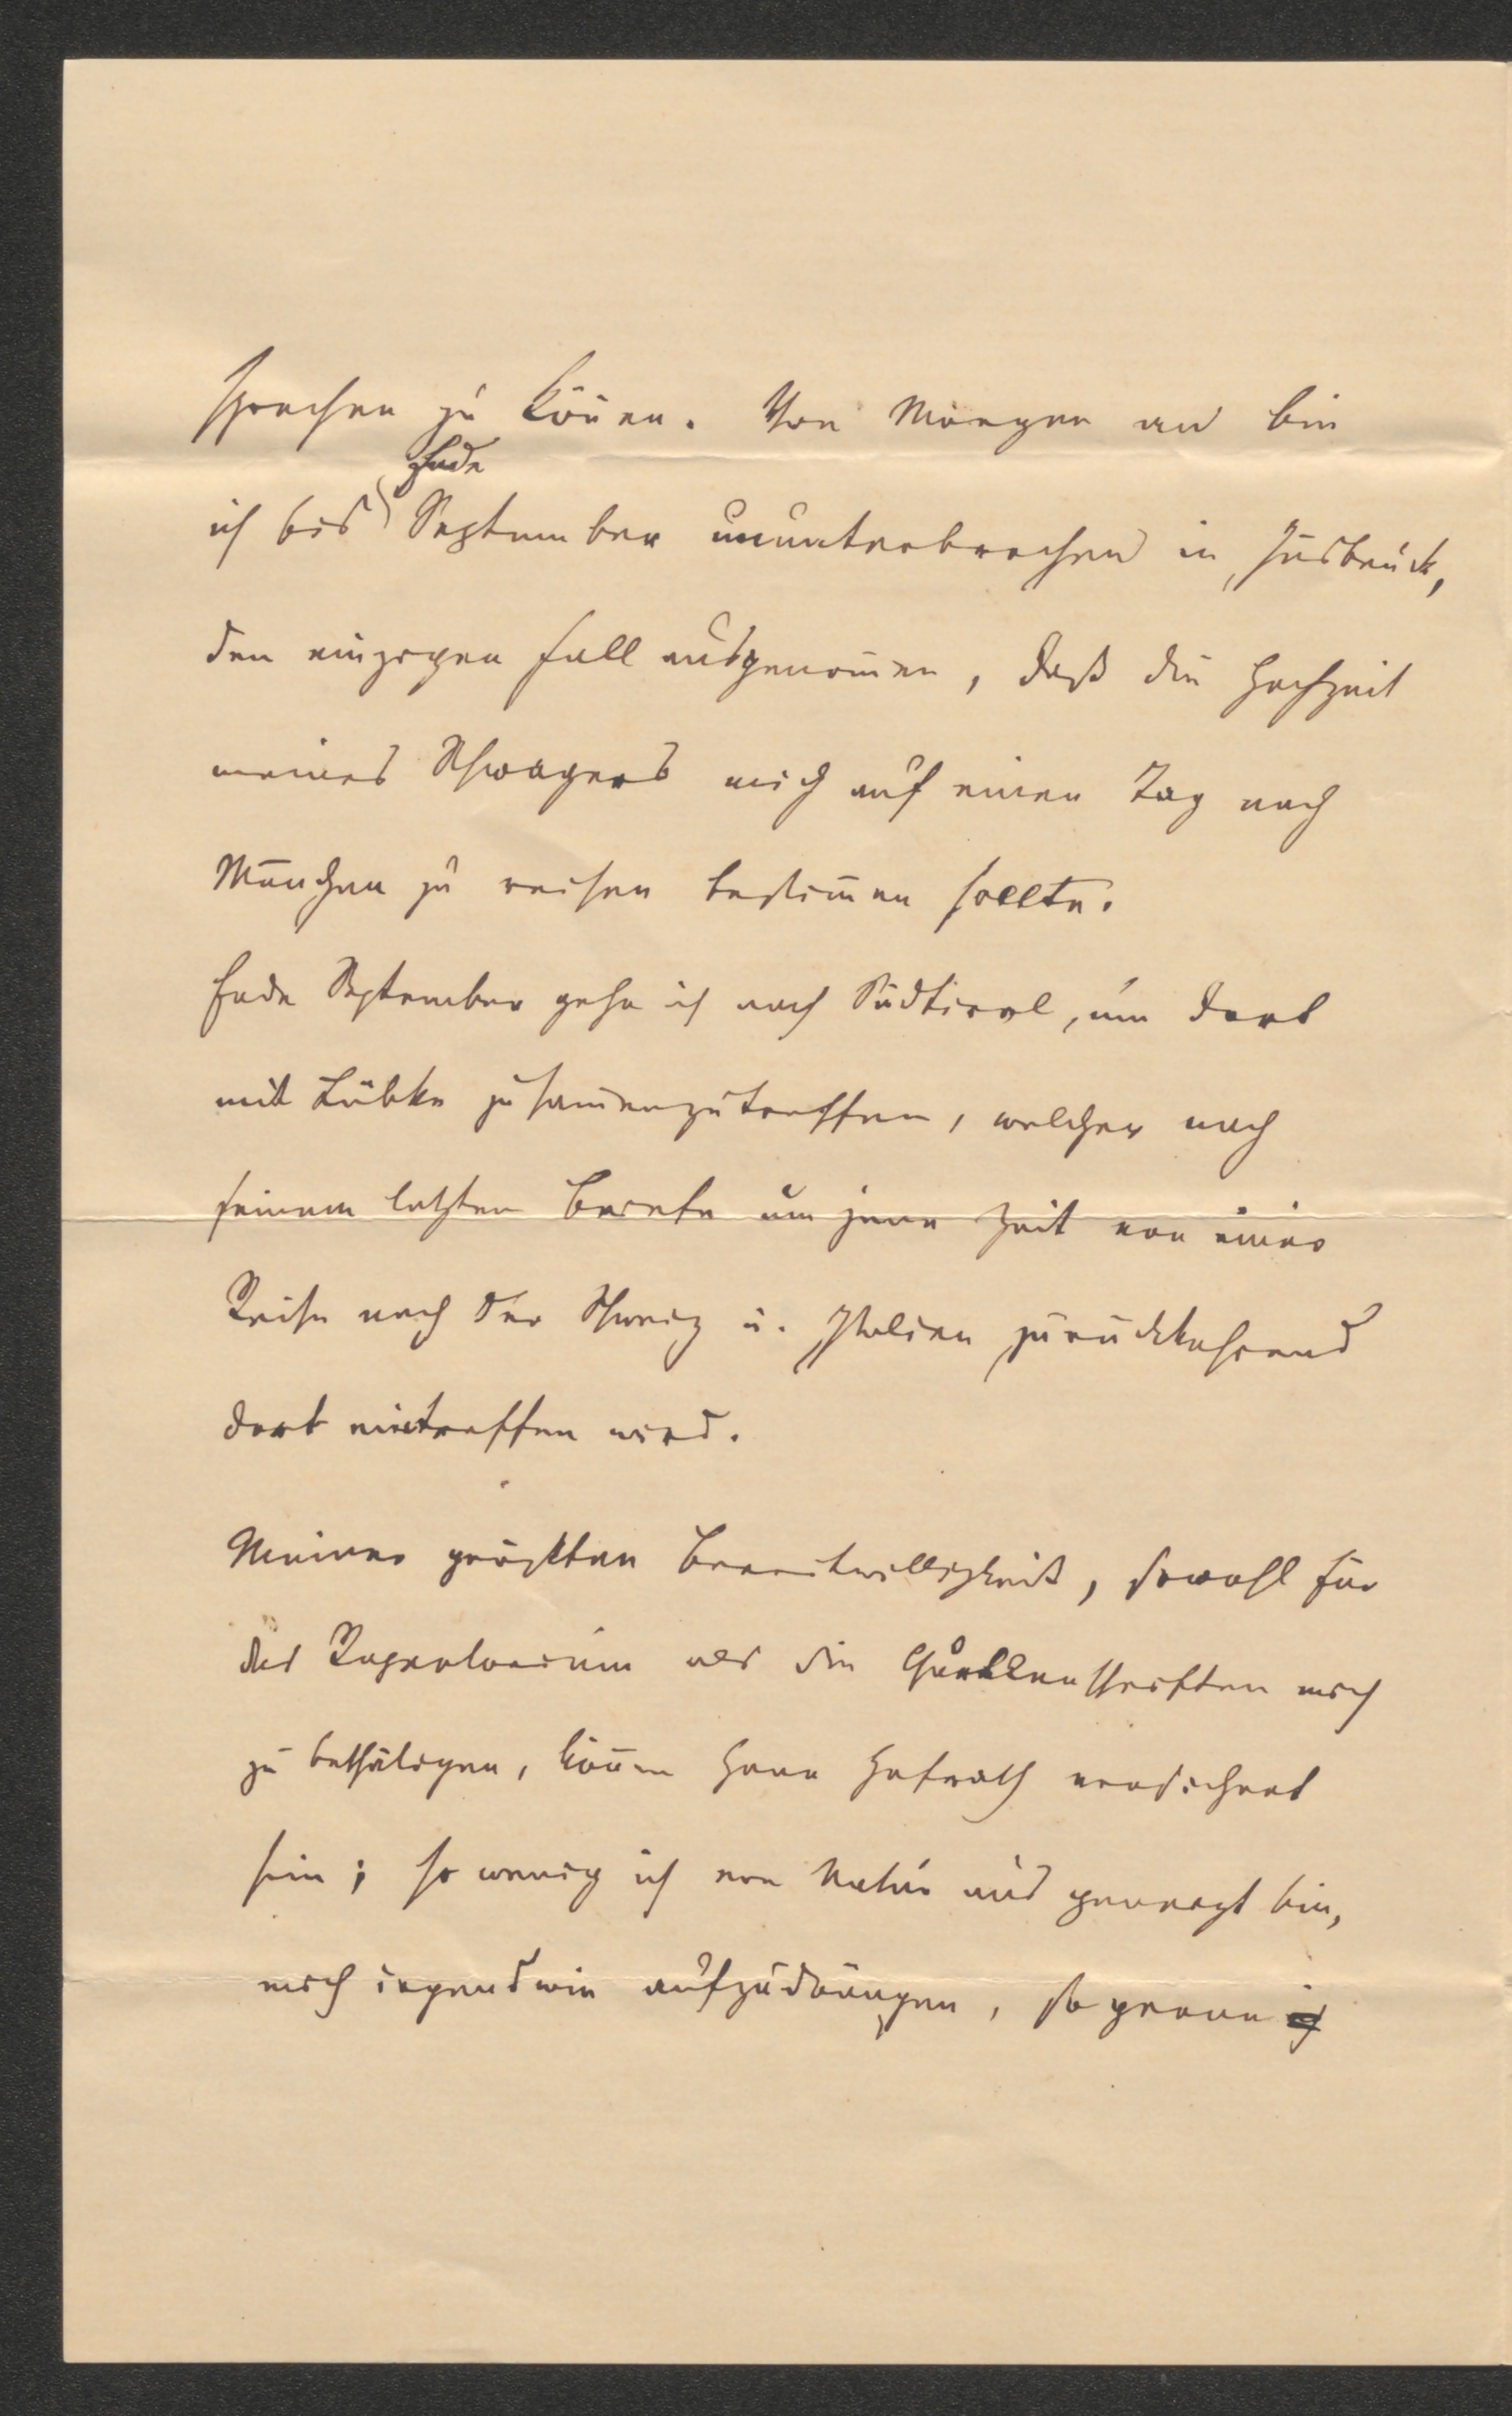 sprechen zu kön̄en. Von Morgen an bin
Ende
ich bis September ununterbrochen in Insbruck,
den einzigen Fall ausgenom̄en, daß die Hochzeit
meines Schwagers mich auf einen Tag nach
München zu reisen bestim̄en sollte.
Ende September gehe ich nach Südtirol, um dort
mit Lübke zusam̄enzutreffen, welcher nach
seinem letzten Briefe um jene Zeit von einer
Reise nach der Schweiz u. Italien zurückkehrend
dort eintreffen wird.
Meiner größten Bereitwilligkeit, sowohl für
das Repertorium als die Quellenschriften mich
zu bethätigen, kön̄en Herr Hofrath versichert
sein; so wenig ich von Natur aus geneigt bin,
mich irgendwie aufzudrängen, so gerne